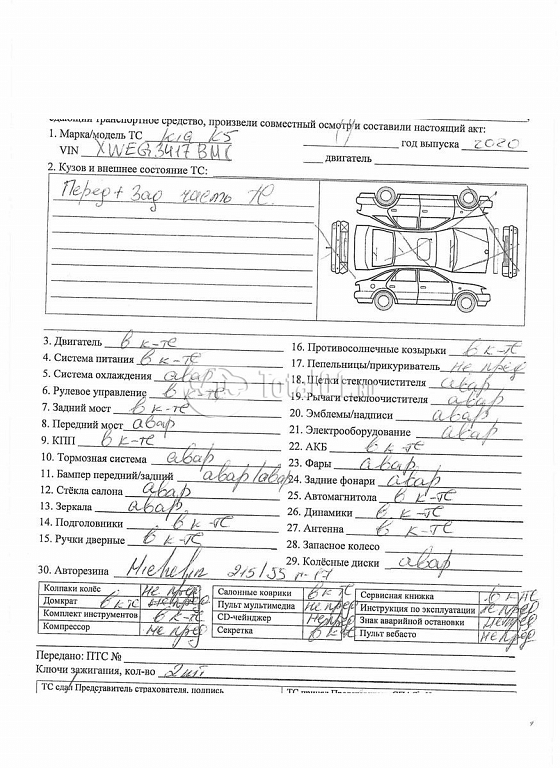 едающий транспортное средство, произвели совместный осмотр и составили настоящий акт:
1. Марка/модель ТС KIA K5
год выпуска 2020
VIN XWEG3417BM
двигатель
2. Кузов и внешнее состояние ТС:
Перед + Зад часть ТС.
3. Двигатель в к-те
4. Система питания в к-те
5. Система охлаждения авар
6. Рулевое управление в к-те
7. Задний мост в к-те
8. Передний мост авар
9. КПП в к-те
10. Тормозная система авар
11. Бампер передний/задний авар/авар
12. Стёкла салона авар
13. Зеркала авар
14. Подголовники в к-те
15. Ручки дверные в к-те
16. Противосолнечные козырьки в к-те
17. Пепельницы/прикуриватель не пред
18. Щетки стеклоочистителя авар
19. Рычаги стеклоочистителя авар
20. Эмблемы/надписи авар
21. Электрооборудование авар
22. АКБ в к-те
23. Фары авар
24. Задние фонари авар
25. Автомагнитола в к-те
26. Динамики в к-те
27. Антенна в к-те
28. Запасное колесо
29. Колёсные диски авар
30. Авторезина Michelin 215/55 r-17
Колпаки колёс не пред
Домкрат в к-те не пред
Комплект инструментов в к-те
Компрессор не пред
Салонные коврики в к-те
Пульт мультимедиа не пред
CD-чейнджер не пред
Секретка в к-те
Сервисная книжка в к-те
Инструкция по эксплуатации не пред
Знак аварийной остановки не пред
Пульт вебасто не пред
Передано: ПТС №
Ключи зажигания, кол-во 2 шт
ТС сдал Представитель страхователя, подпись